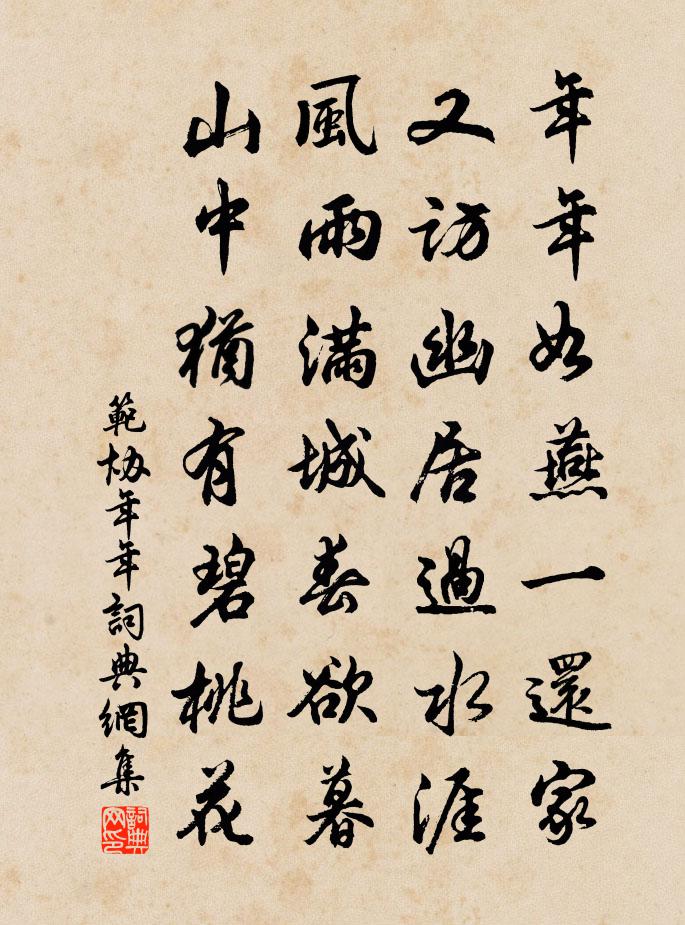 年年如燕一還家
又訪幽居過水涯
風雨滿城春欲暮
山中猶有碧桃花
範協年年詞典網集
詞典網印